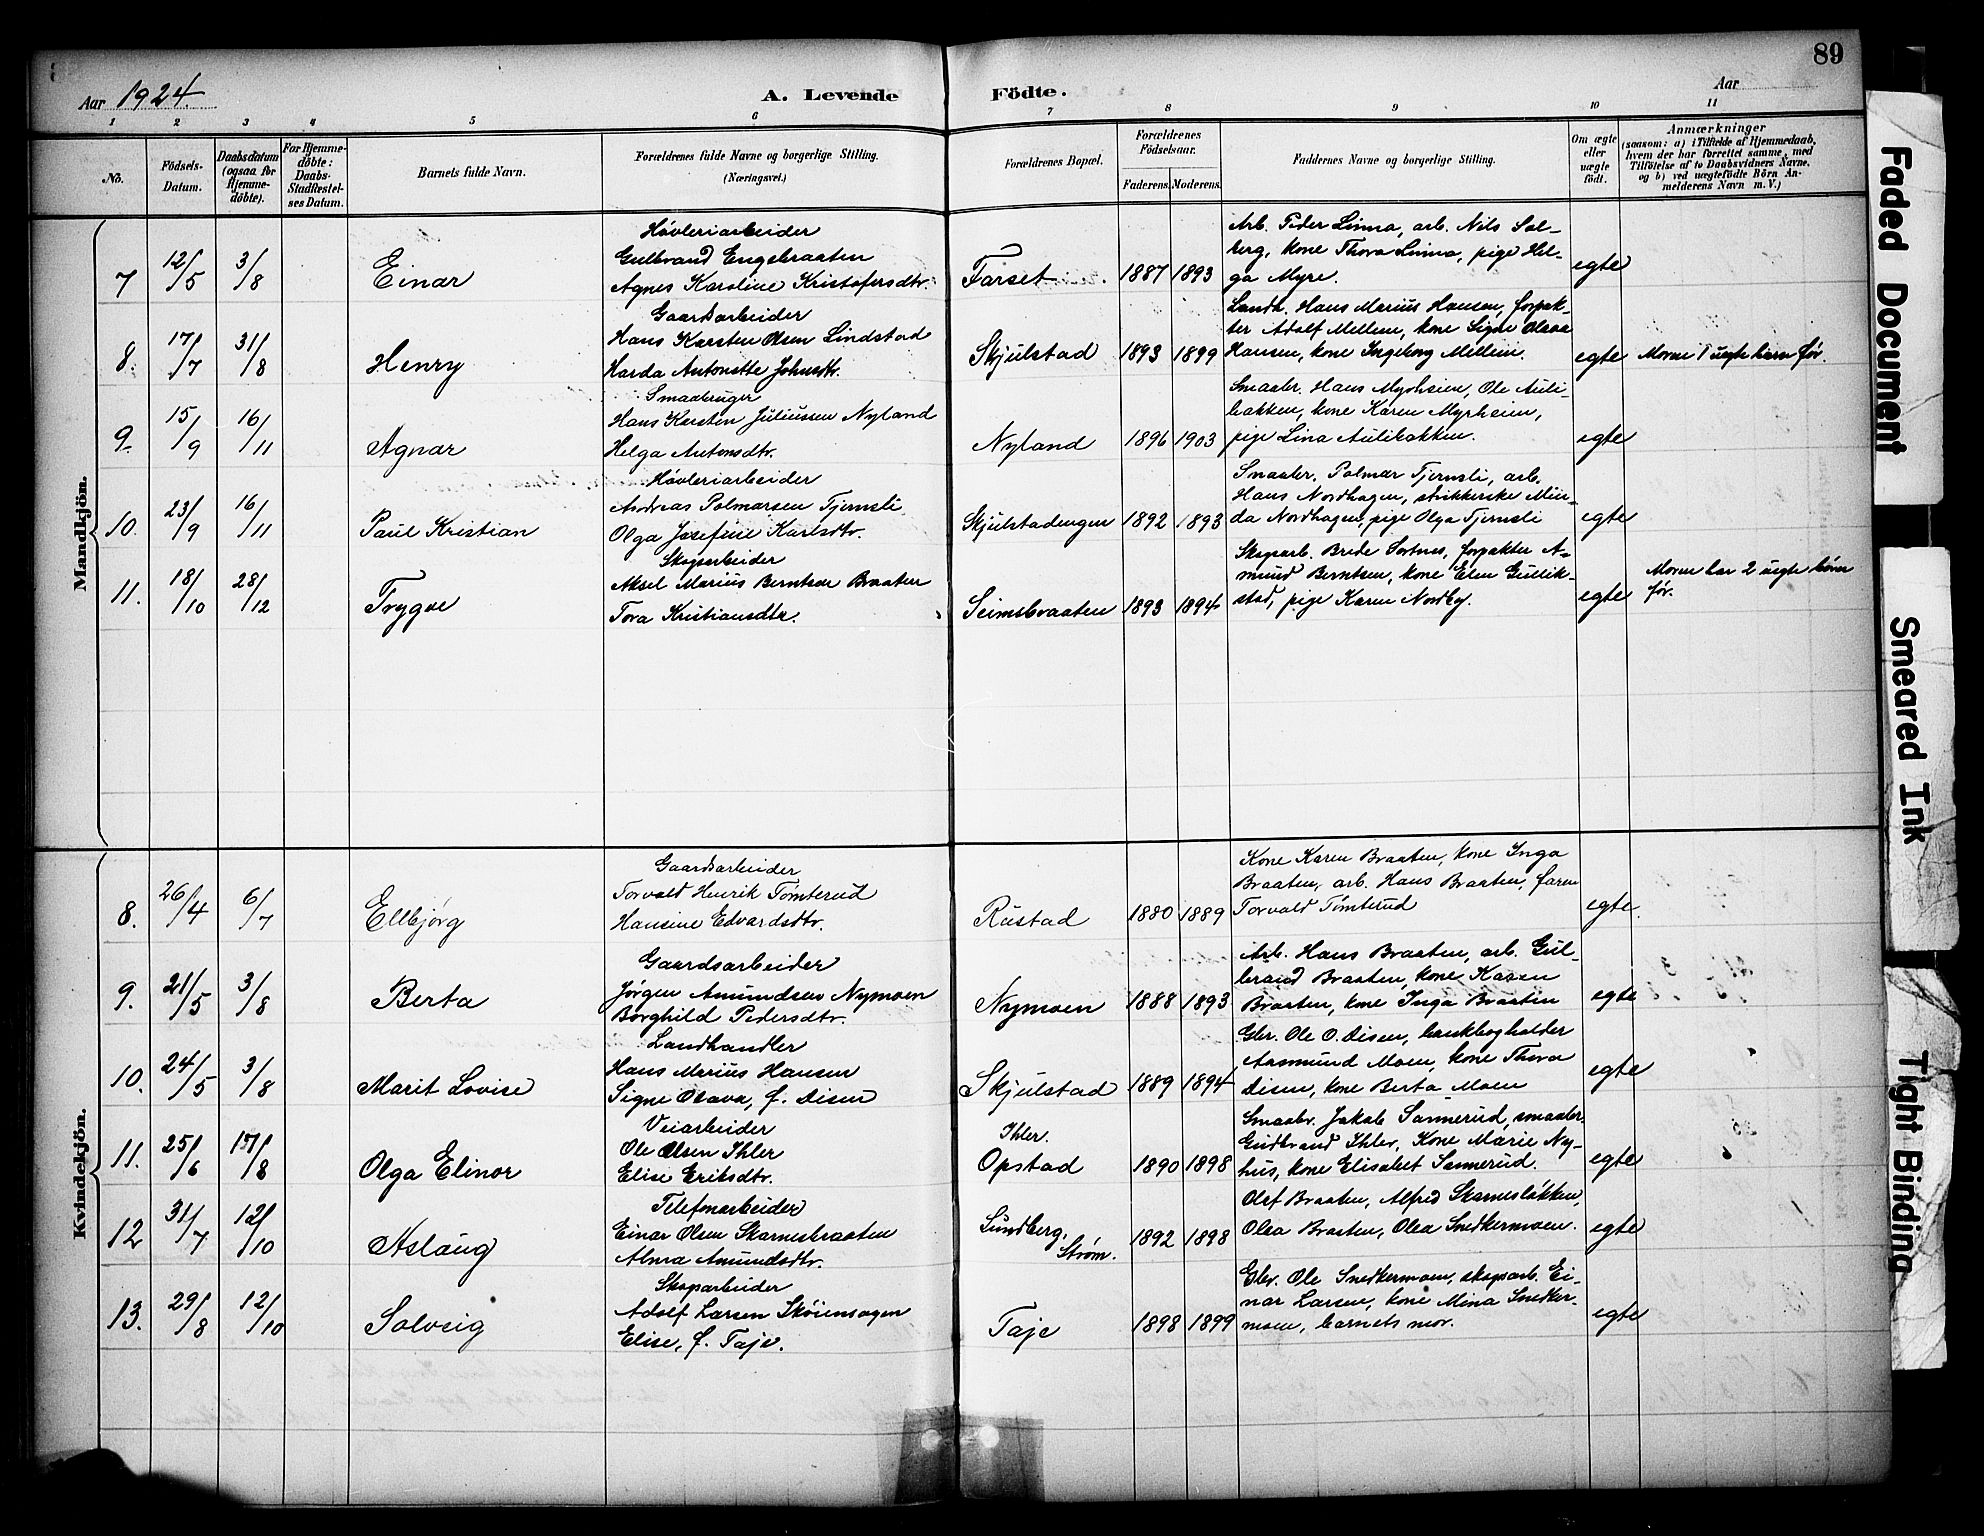 89
Aar 1924.
A. Levende Födte.
Aar
1 2 3 4 5 6 7 8 9 10 11
No.
Födsels-Datum.
Daabsdatum (ogsaa for Hjemme-döbte).
For Hjemme-döbte: Daabs-Stadfestel-ses Datum.
Barnets fulde Navn.
Forældrenes fulde Navne og borgerlige Stilling.
(Næringsvei.)
Forældrenes Bopæl.
Forældrenes Födselsaar.
Faderens. Moderens.
Faddernes Navne og borgerlige Stilling.
Om ægte eller uægte födt.
Anmærkninger
(saasom: a) i Tilfælde af Hjemmedaab, hvem der har forrettet samme, med Tilföielse af to Daabsvidners Navne, og b) ved uægtefödte Börn An-melderens Navn m. V.)
Mandkjön.
7 12/5 3/8 Einar
Høvleriarbeider
Gulbrand Engebraaten
Agnes Karoline Kristofersdtr.
Farset 1887 1893
Arb. Peder Linna, arb. Nils Sol-
berg, kone Thora Linna, pige Hel-
ga Myre.
egte
8. 17/7 31/8 Henry
Gaardsarbeider
Hans Karsten Olsen Lindstad
Harda Antonette Johnsdtr.
Skjulstad 1893 1899
Landh. Hans Marius Hansen, forpak-
ter Adolf Mellem, kone Signe Olava
Hansen, kone Ingeborg Mellem.
egte
Moren 1 uegte barn før.
9. 15/9 16/11 Agnar
Smaabruger
Hans Karsten Juliussen Nyland
Helga Antonsdtr.
Nyland 1896 1903
Smaabr. Hans Myrheien, Ole Auli-
bakken, kone Karen Myrheien,
pige Lina Aulibakken.
egte
10. 23/9 16/11 Paul Kristian
Høvleriarbeider
Andreas Palmarsen Tjernsli
Olga Josefine Karlsdtr.
Skjulstadengen 1892 1893
Smaabr. Palmar Tjernsli, arb.
Hans Nordhagen, strikkerske Min-
da Nordhagen, pige Olga Tjernsli
egte
11. 18/10 28/12 Trygve
Skogsarbeider
Aksel Marius Berntsen Braaten
Tora Kristiansdtr.
Seimsbraaten 1893 1894
Skogsarb. Brede Sortnes, forpakter A-
mund Berntsen, kone Elen Gullik-
stad, pige Karen Nordby.
egte
Moren har 2 uegte børn
før.
Kvindekjön.
8. 26/4 6/7 Ellbjørg
Gaardsarbeider
Torvald Henrik Tømterud
Hansine Edvardsdtr.
Rustad 1880 1889
Kone Karen Braaten, kone Inga
Braaten, arb. Hans Braaten, faren
Torvald Tømterud
egte.
9. 21/5 3/8 Berta
Gaardsarbeider
Jørgen Amundsen Nymoen
Borghild Pedersdtr.
Nymoen 1888 1893
Arb. Hans Braaten, arb. Gul-
brand Braaten, kone Karen
Braaten, kone Inga Braaten
egte
10. 24/5 3/8 Marit Lovise
Landhandler
Hans Marius Hansen
Signe Olava, f. Disen
Skjulstad 1889 1894
Gbr. Ole O. Disen, bankbogholder
Aasmund Moen, kone Thora
Disen, kone Berta Moen
egte
11. 25/6 17/8 Olga Elinor
Veiarbeider
Ole Olsen Ihler
Elise Eriksdtr.
Ihler.
Opstad 1890 1898
Smaabr. Jakob Sannerud, smaabr.
Gudbrand Ihler, Kone Marie Ny-
hus, kone Elisabet Sannerud.
egte
12 31/7 12/10 Aslaug
Telefonarbeider
Einar Olsen Skarnesbraaten
Alma Amundsdtr.
Sundberg,
Strøm. 1892 1898
Olaf Braaten, Alfred Skarnesløkken,
Olea Braaten, Olea Snedkermoen.
egte
13. 29/8 12/10 Solveig
Skogarbeider
Adolf Larsen Skøiensagen
Elise, f. Taje.
Taje 1898 1899
Gbr. Ole Snedkermoen, skogsarb. Ei-
nar Larsen, kone Mina Snedker-
moen, barnets mor.
egte
Faded Document
Smeared Ink
Tight Binding